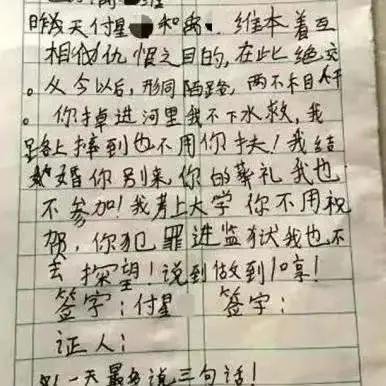 昨天付星 和 维本着互
相仇恨之目的,在此绝交
。从今以后,形同陌路,两不相干
。你掉进河里我不下水救,我
路上摔到也不用你扶!我结
婚你别来,你的葬礼我也
不参加!我考上大学你不用祝
贺,你犯罪进监狱我也不
去探望!说到做到!哼!
签字:付星 签字:
证人:
一天最多说三句话!